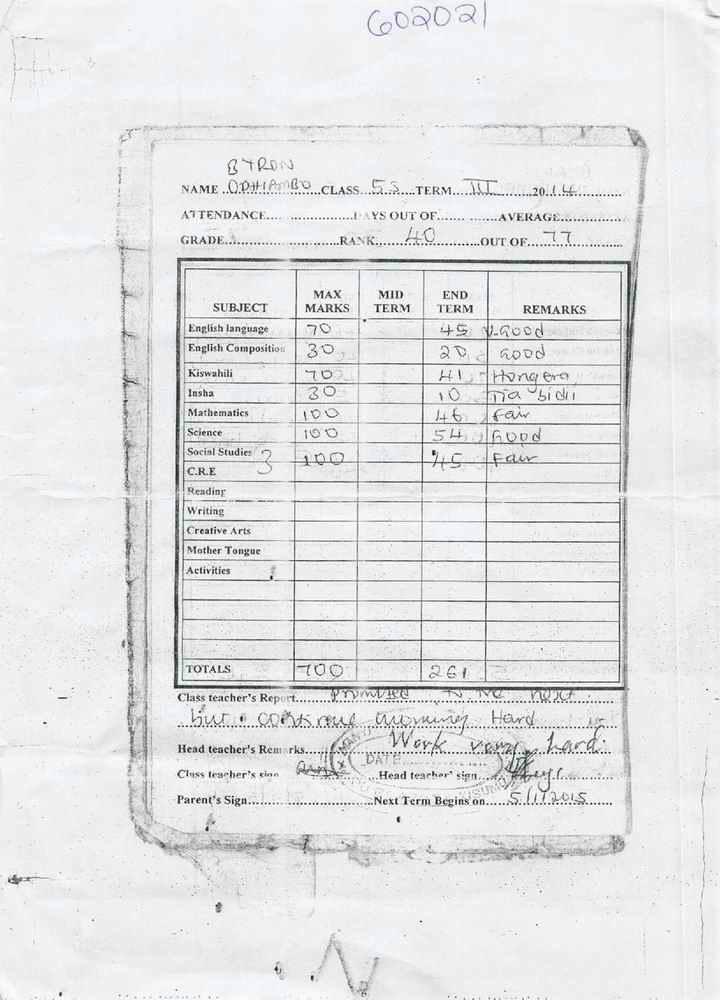 602021
BYRON
NAME ODHIAMBO CLASS 5S TERM III 2014
ATTENDANCE DAYS OUT OF AVERAGE
GRADE RANK 40 OUT OF 77
SUBJECT MAX MARKS MID TERM END TERM REMARKS
English language 70 45 V.Good
English Composition 30 20 Good
Kiswahili 70 41 Hongera
Insha 30 10 Tia bidii
Mathematics 100 46 Fair
Science 100 54 Good
Social Studies 3 100 45 Fair
C.R.E
Reading
Writing
Creative Arts
Mother Tongue
Activities
TOTALS 700 261
Class teacher's Report promoted to the next
but Hard
Head teacher's Remarks Work very hard.
DATE
Class teacher's sign Head teacher' sign
KISUMU
Parent's Sign Next Term Begins on 5/1/2015